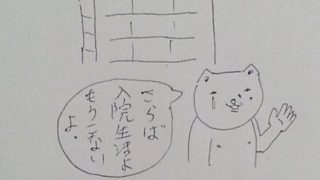 さらば
入院生活よ
もう来ない
よ.